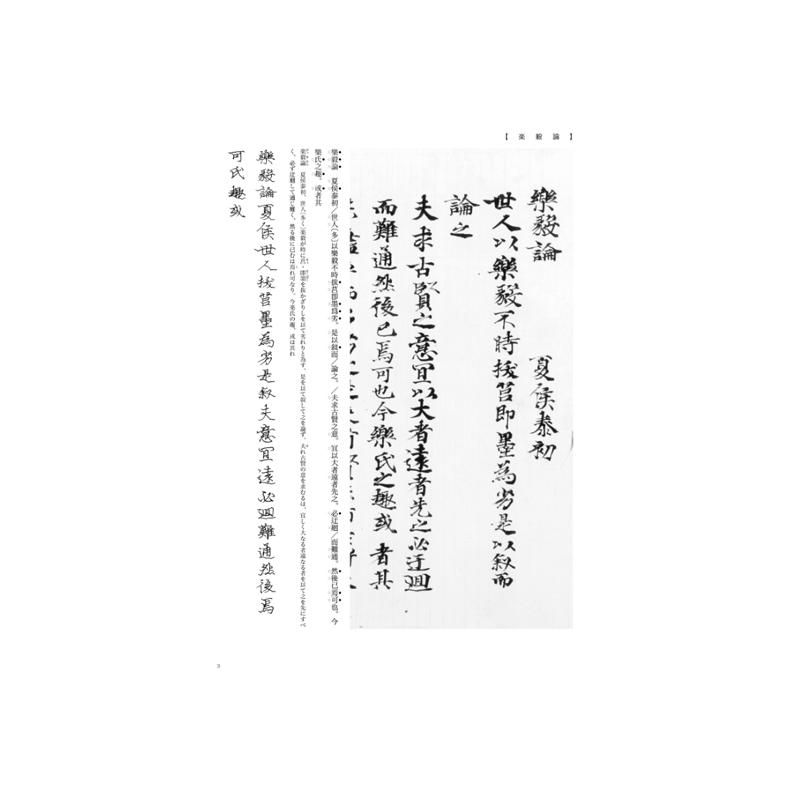 【楽毅論】
樂毅論 夏侯泰初
世人以樂毅不時拔莒即墨為劣是以叙而
論之
夫求古賢之意冝以大者遠者先之必迂迴
而難通然後已焉可也今樂氏之趣或者其
樂毅論 夏侯泰初／世人（多）以樂毅不時拔莒即墨爲劣。是以叙而／論之。／夫求古賢之意。冝以大者遠者先之。必迂廻／而難通。然後已焉可也。今
樂氏之趣。或者其
楽毅論 夏侯泰初、世人（多く）楽毅が時に莒・即墨を抜かざりしを以て劣れりと為す。是を以て叙して之を論ず。夫れ古賢の意を求むるは、宜しく大なる者遠なる者を以て之を先にすべ
く、必ず迂廻して通じ難く、然る後に已むは焉れ可なり。今楽氏の趣、或は其れ
樂毅論夏侯世人拔莒墨為劣是叙夫意冝遠必迴難通然後焉
可氏趣或
3